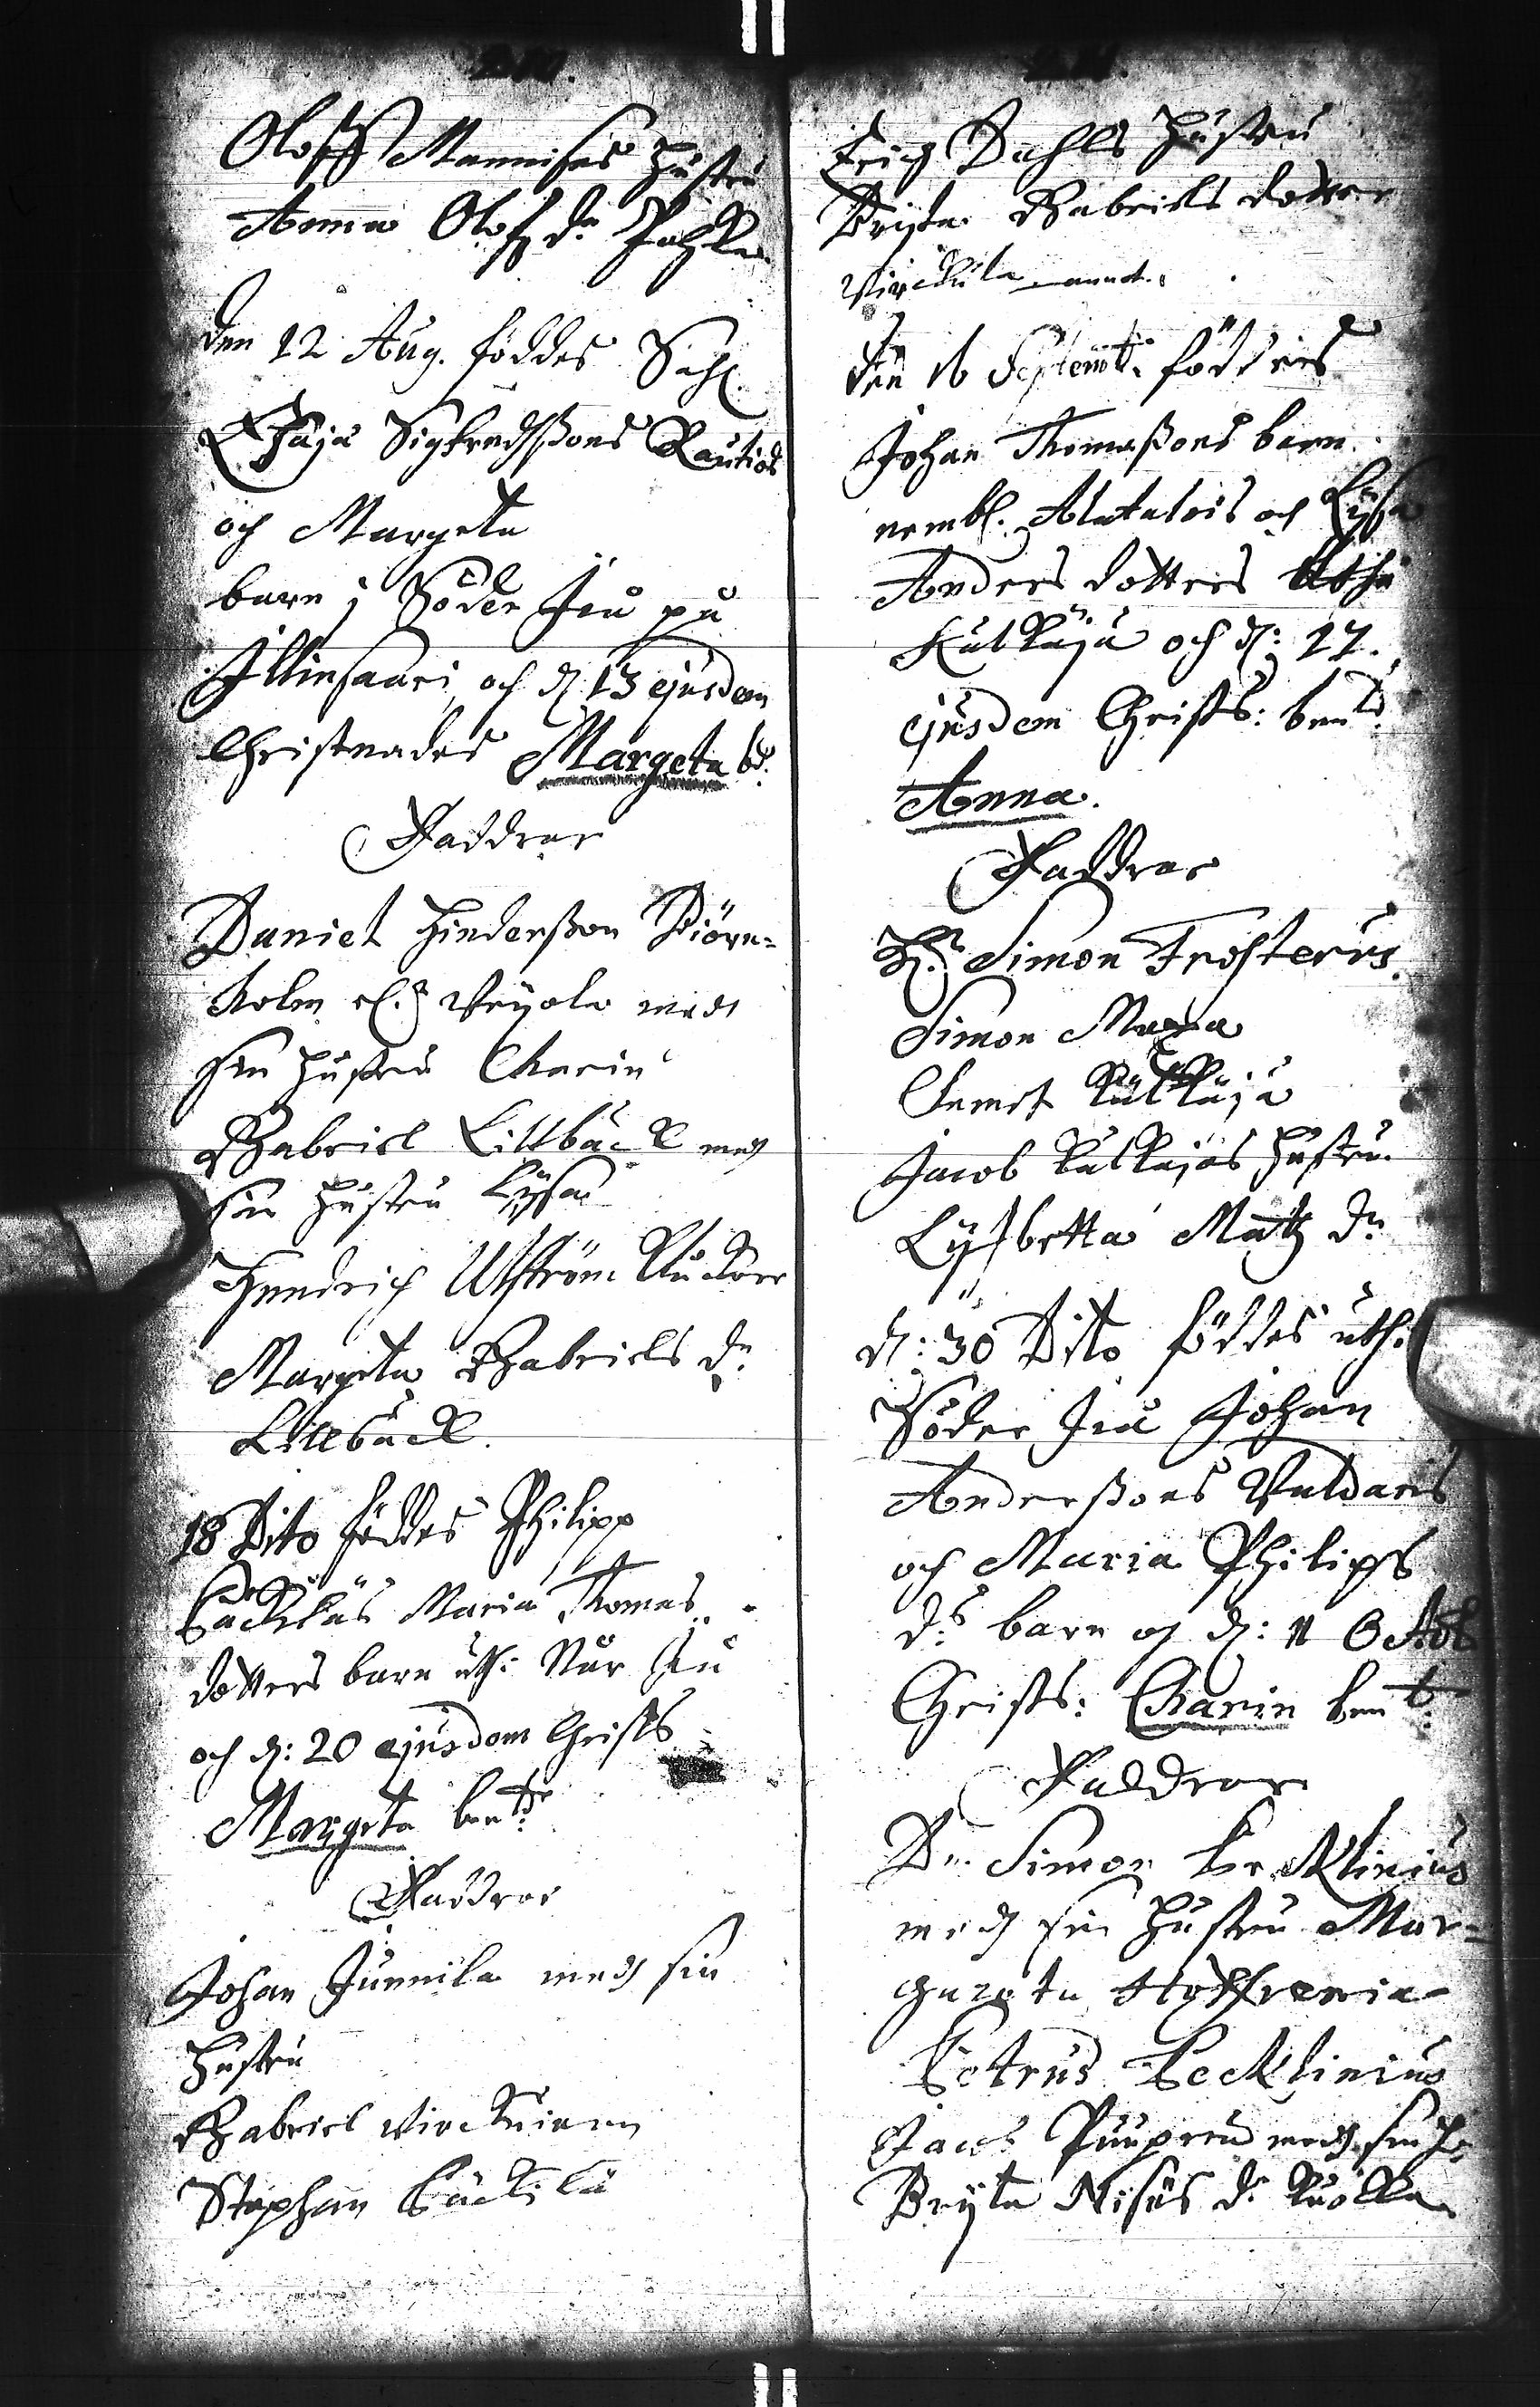 Oloff Mannisas hustru
Anna Olofz dr Pahka
den 12 Aug. föddes Sahl.
Esaja Sigfredssons Rautios
och Margeta
barn j Söder Iiu på
Illinsaari och d. 13 ejusdem
Christnades Margeta bd.
Faddrar
Daniel Hindersson Biörn=
holm el.r Veijola med
sin hustru Charin
Gabriel Lillbäck med
sin hustru Lijsa
Hendrich Utström
Margeta Gabriels dr
Lillbäck.
18 Dito föddes Philipp
Päckiläs Maria Thomas
dotters barn uth: Når Iiu
och d: 20 ejusdem Christs
Margeta bentd:
Faddrar
Johan Junnila med sin
hustru
Gabriel Virckuinen
Stephan Päckilä
Erich Dahls hustru
Brijta Gabriels dotter
Virckula
den 16 Septemb. föddes
Johan Thomassons barn
nembl. Alatalos och Lijsa
Anders dotters uthi
Kulkuja och d: 17.
ejusdem Christs: bentd
Anna.
Faddrar
Hr. Simon Frosterus.
Simon Maxa
Clemet Kulkuja
Jacob Kulkujas hustru
Lijsbetta Matz dr
d: 30 Dito föddes uthi
Söder Iiu Johan
Anderssons Valdaris
och Maria Philips
drs barn och d: 11 Octob
Christs: Charin bent:
Faddrar
Dn. Simon Pecklinius
med sin hustru Mar=
gareta Hoffrenia
Petrus Pecklinius
Jacob Puuperä med sin h:
Brijta Nisiis dr Kuokka